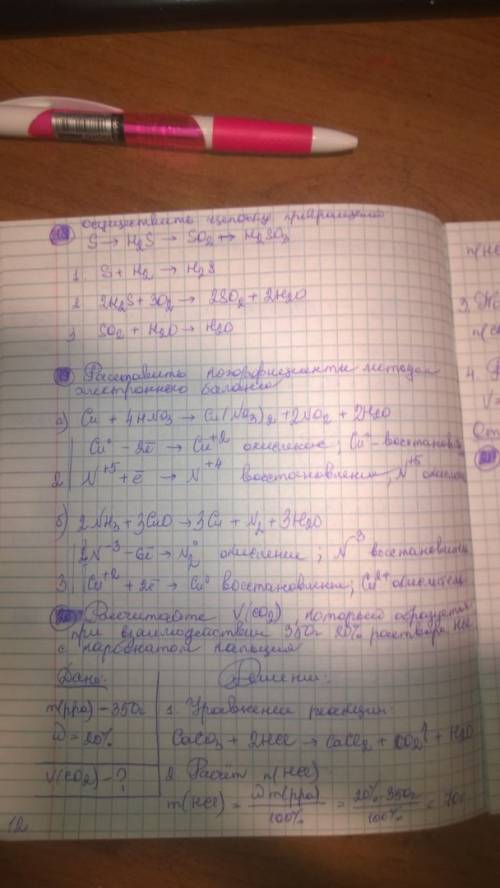 18 осуществить цепочку превращений
S → H₂S → SO₂ ↔ H₂SO₃
1. S + H₂ → H₂S
2. 2H₂S + 3O₂ → 2SO₂ + 2H₂O
3. SO₂ + H₂O → H₂O
19 Расставить коэффициенты методом
электронного баланса
а) Cu + 4HNO₃ → Cu(NO₃)₂ + 2NO₂ + 2H₂O
Cu⁰ - 2ē → Cu⁺² окисление; Cu⁰ - восстанови
2 | N⁺⁵ + ē → N⁺⁴ восстановление, N⁺⁵ окисли
б) 2NH₃ + 3CuO → 3Cu + N₂ + 3H₂O
2N⁻³ - 6ē → N₂⁰ окисление; N⁻³ восстановите
3 | Cu⁺² + 2ē → Cu⁰ восстановление; Cu²⁺ окислитель
Рассчитайте V(CO₂), который образуется
при взаимодействии 350г 20% раствора HCl
с карбонатом кальция
Дано:
Решение:
m(рра) - 350г
1. Уравнение реакции:
W = 20%
CaCO₃ + 2HCl → CaCl₂ + CO₂↑ + H₂O
V(CO₂) - ?
2. Расчёт n(HCl)
m(HCl) = W m(рра) / 100% = 20% · 350г / 100% = 70г
12
n(HCl
3.
n(co
4.
V=
От